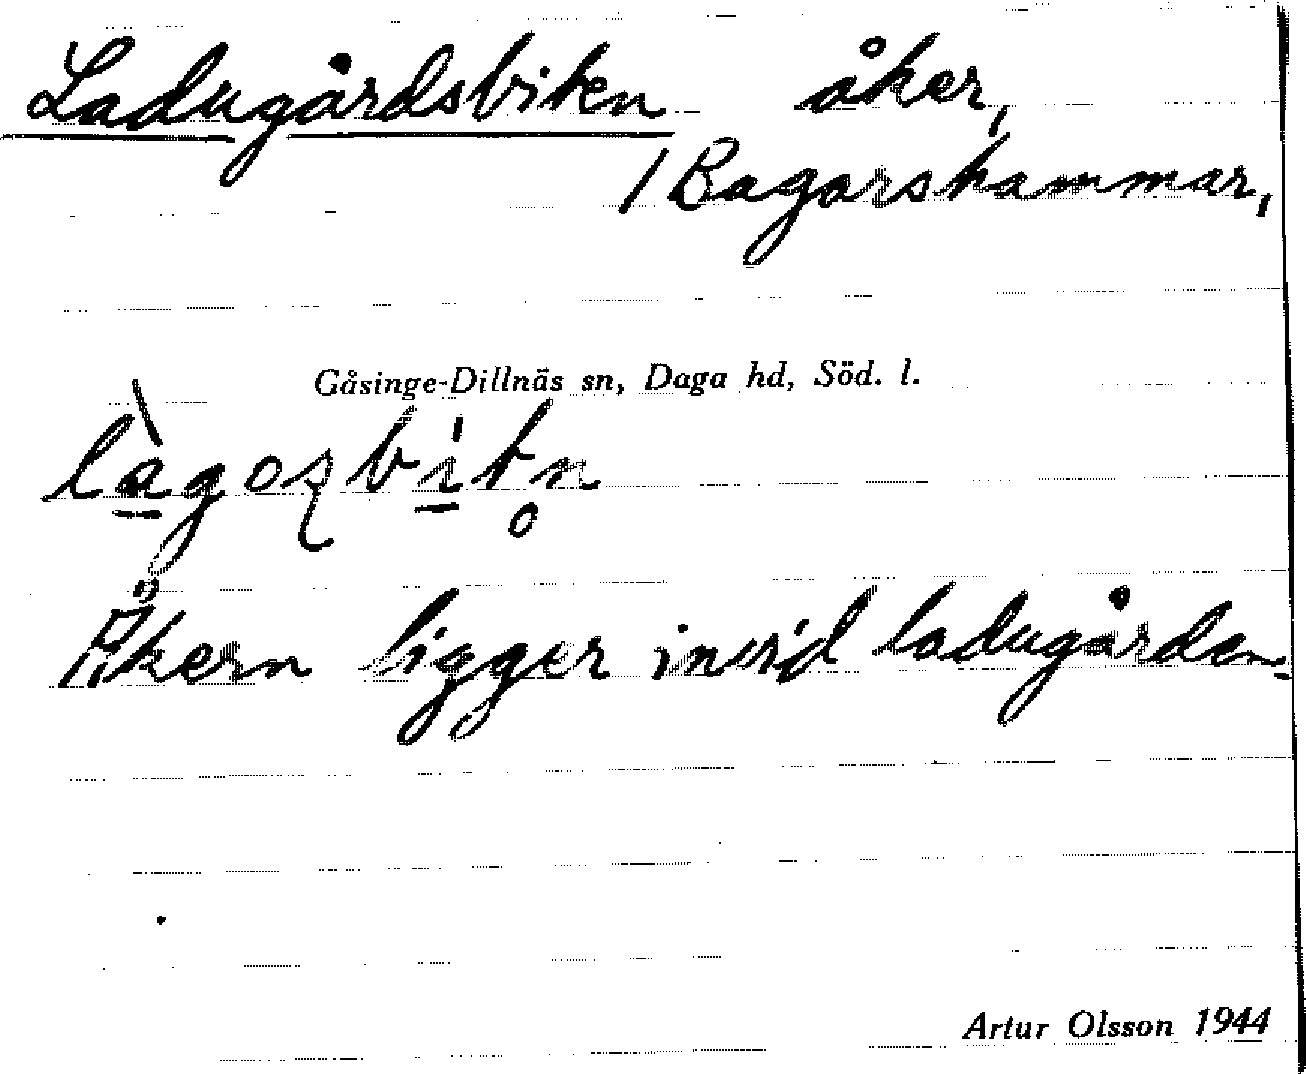 Ladugårdsbiten åker,
/ Bagarshammar,
Gåsinge-Dillnäs sn, Daga hd, Söd. l.
Åkern ligger invid ladugården
Artur Olsson 1944